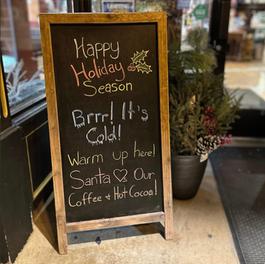 Happy
Holiday
Season
Brrr! It's
Cold!
Warm up here!
Santa ♡'s Our
Coffee + Hot Cocoa!